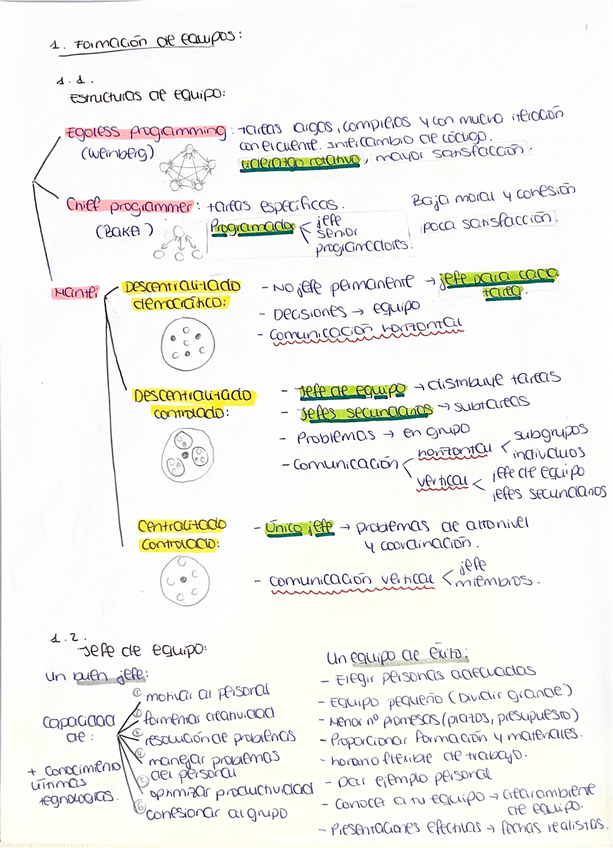 1. Formación de equipos:
1.1.
Estructuras de equipo:
Egoless programming: tareas largas, complejas y con mucha iteración
(Weinberg) con el cliente. Intercambio de código.
Liderazgo rotativo, mayor satisfacción.
Chief programmer: tareas específicas. Baja moral y cohesión
(Baker) Programador jefe poca satisfacción.
senior
programadores.
Mantei Descentralizado - No jefe permanente → jefe para cada
democrático: tarea.
- Decisiones → equipo
- Comunicación horizontal
Descentralizado - Jefe de equipo → distribuye tareas
controlado: - Jefes secundarios → subtareas
- Problemas → en grupo
- Comunicación horizontal subgrupos
individuos
vertical jefe de equipo
jefes secundarios
Centralizado - Único jefe → problemas de alto nivel
Controlado: y coordinación.
- Comunicación vertical jefe
miembros.
1.2.
Jefe de equipo:
Un buen jefe:
Capacidad de:
① motivar al personal
② fomentar creatividad
③ resolución de problemas
④ manejar problemas
del personal
⑤ optimizar productividad
⑥ cohesionar al grupo
+ conocimiento
últimas
tegnologías.
Un equipo de éxito:
- Elegir personas adecuadas
- Equipo pequeño (Dividir grande)
- Menor nº promesas (plazos, presupuesto)
- Proporcionar formación y materiales.
- horario flexible de trabajo.
- Dar ejemplo personal
- Conocer a tu equipo → crear ambiente
de equipo.
- Presentaciones efectivas → fechas realistas.